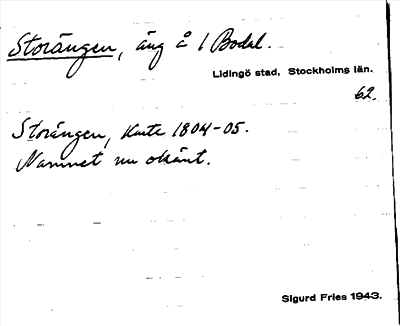 Storängen, äng å 1 Bodal.
Lidingö stad, Stockholms län.
62.
Storängen, Karta 1804-05.
Namnet nu okänt.
Sigurd Fries 1943.